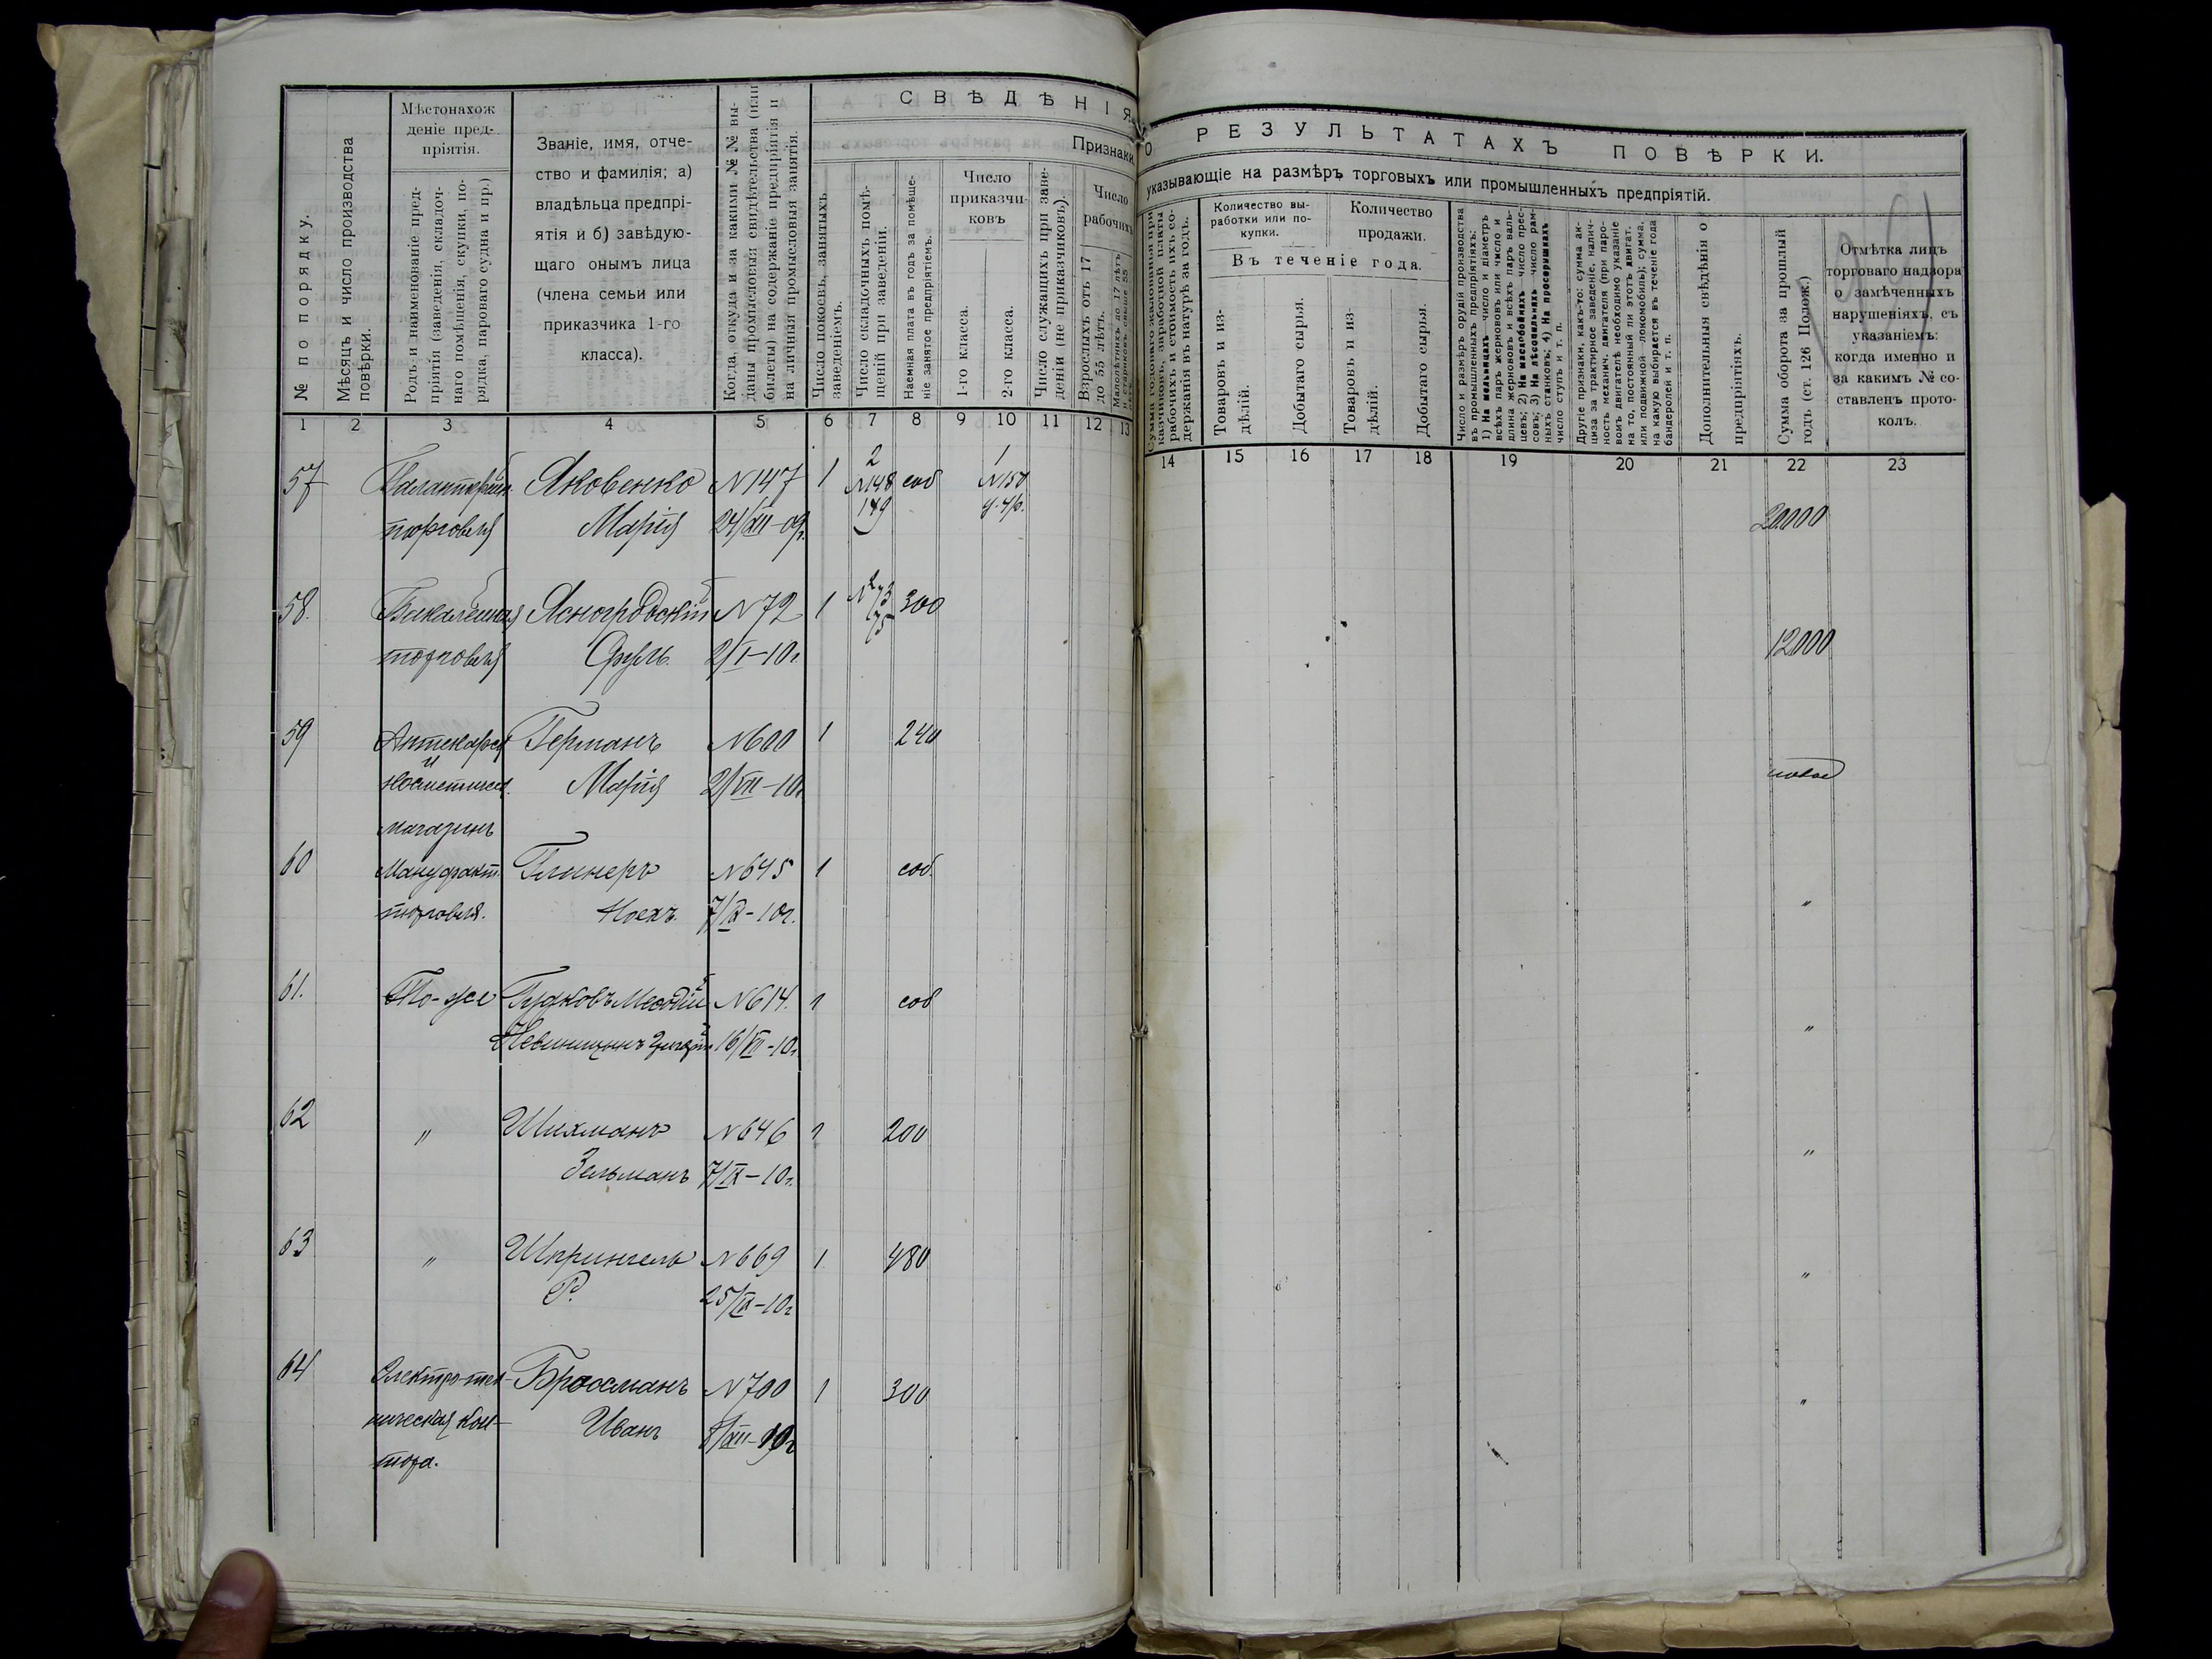 СВѢДѢНІЯ О РЕЗУЛЬТАТАХЪ ПОВѢРКИ.
Признаки, указывающіе на размѣръ торговыхъ или промышленныхъ предпріятій.
№ по порядку.
Мѣсяцъ и число производства
повѣрки.
Мѣстонахож
деніе пред-
пріятія.
Родъ и наименованіе пред-
пріятія (заведенія, складоч-
наго помѣщенія, скупки, по-
рядка, пароваго судна и пр.)
Званіе, имя, отче-
ство и фамилія; а)
владѣльца предпрі-
ятія и б) завѣдую-
щаго онымъ лица
(члена семьи или
приказчика 1-го
класса).
Когда, откуда и за какими №№ вы-
даны промысловыя свидѣтельства (или
билеты) на содержаніе предпріятія и
на личныя промысловыя занятія.
Число покоевъ, занятыхъ
заведеніемъ.
Число складочныхъ помѣ-
щеній при заведеніи.
Наемная плата въ годъ за помѣще-
ніе занятое предпріятіемъ.
Число
приказчи-
ковъ
1-го класса.
2-го класса.
Число служащихъ при заве-
деніи (не приказчиковъ).
Число
рабочихъ
Взрослыхъ отъ 17
до 55 лѣтъ.
Малолѣтнихъ до 17 лѣтъ
и стариковъ свыше 55
Сумма годоваго жалованья при-
казчиковъ, заработной платы
рабочихъ и стоимость ихъ со-
держанія въ натурѣ за годъ.
Количество вы-
работки или по-
купки.
Количество
продажи.
Въ теченіе года.
Товаровъ и из-
дѣлій.
Добытаго сырья.
Товаровъ и из-
дѣлій.
Добытаго сырья.
Число и размѣръ орудій производства
въ промышленныхъ предпріятіяхъ:
1) На мельницахъ число и діаметръ
всѣхъ паръ жернововъ или число и
длина жерновъ и всѣхъ паръ валь-
цевъ; 2) На маслобойняхъ число прес-
совъ; 3) На лѣсопильняхъ число рам-
ныхъ станковъ; 4) На просорушкахъ
число ступъ и т. п.
Другіе признаки, какъ-то: сумма ак-
циза за трактирное заведеніе, налич-
ность механич. двигателя (при паро-
вомъ двигателѣ необходимо указаніе
на то, постоянный ли этотъ двигат.
или подвижной -локомобиль); сумма,
на какую выбирается въ теченіе года
бандеролей и т. п.
Дополнительныя свѣдѣнія о
предпріятіяхъ.
Сумма оборота за прошлый
годъ (ст. 126 Полож.)
Отмѣтка лицъ
торговаго надзора
о замѣченныхъ
нарушеніяхъ, съ
указаніемъ:
когда именно и
за какимъ № со-
ставленъ прото-
колъ.
1 2 3 4 5 6 7 8 9 10 11 12 13 14 15 16 17 18 19 20 21 22 23
57 Галантерейн. Яковенко №147 1 2 №148 соб 1 №150
торговля Марія 24/XII-09г. 149 20000
58. Бакалейная Ясногродскій №72 1 2 №73 300
торговля 2/I-10г 75 12000
59 Аптекарск Германъ №600 1 240
и
косметическ. Марія 2/VII-10г новое
магазинъ
60 Мануфакт. Глинеръ №645 1 соб.
торговля. Ноехъ 7/IX-10г. "
61. То-же Гудковъ Меѳодій №614. 1 соб
16/VII-10г "
62 " Шихманъ №646 1 200
Зельманъ 7/IX-10г. "
63 " Шпрингель №669 1 480
Р. 25/IX-10г "
64 Электро-тех- Броссманъ №700 1 300
ническая кон- Иванъ 8/XII-10г "
тора.